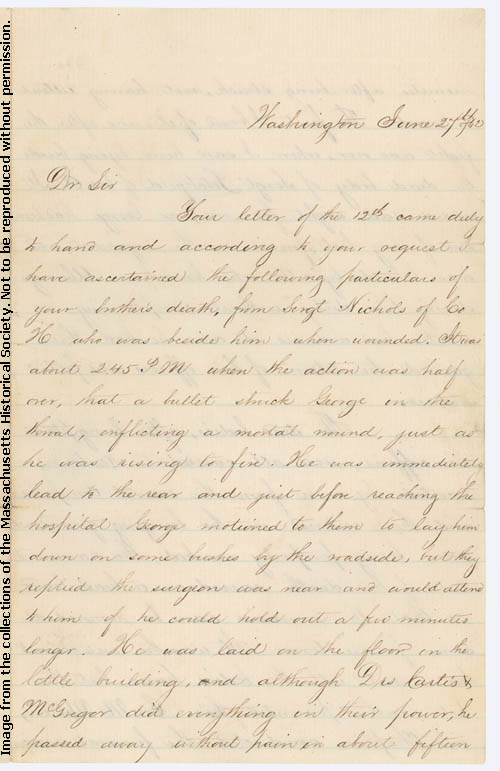 Washington June 27th/62
Dr Sir
Your letter of the 12th came duly
to hand and according to your request I
have ascertained the following particulars of
your brothers death, from Sergt Nichols of Co
H who was beside him when wounded. It was
about 2.45 P M when the action was half
over, that a bullet struck George in the
throat, inflicting a mortal wound, just as
he was rising to fire. He was immediately
lead to the rear and just before reaching the
hospital George motioned to them to lay him
down on some bushes by the roadside, but they
replied the surgeon was near and would attend
to him if he could hold out a few minutes
longer. He was laid on the floor in the
little building, and although Drs Curtis &
McGregor did everything in their power, he
passed away without pain in about fifteen
Image from the collections of the Massachusetts Historical Society. Not to be reproduced without permission.